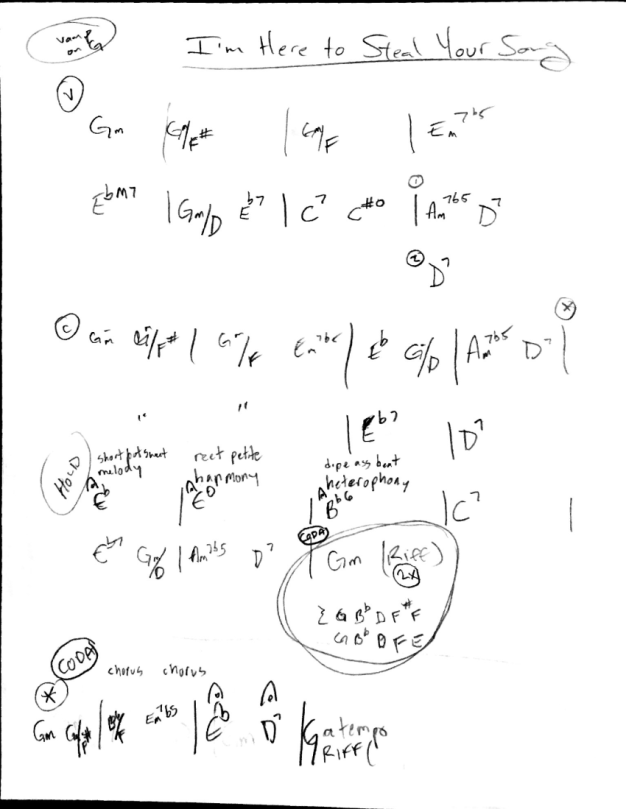 vamp on G
I'm Here to Steal Your Song
V
Gm | Gm/F# | Gm/F | Em7b5
①
EbM7 | Gm/D Eb7 | C7 C#o | Am7b5 D7
② D7
C Gm- G-/F# | G-/F Em7b5 | Eb G-/D | Am7b5 D7 |
" " | Eb7 | D7
HOLD
short potsheet melody reet petite harmony dope ass beat heterophony
Eb | | Bb6 | C7 |
CODA
Eb7 Gm/D | Am7b5 D7 | Gm | (Riff)
2x
G Bb D F# F
G Bb D F E
CODA
chorus chorus
*
Gm Gm/F# | Gm/F Em7b5 | Eb D7 | G a tempo
RIFF(